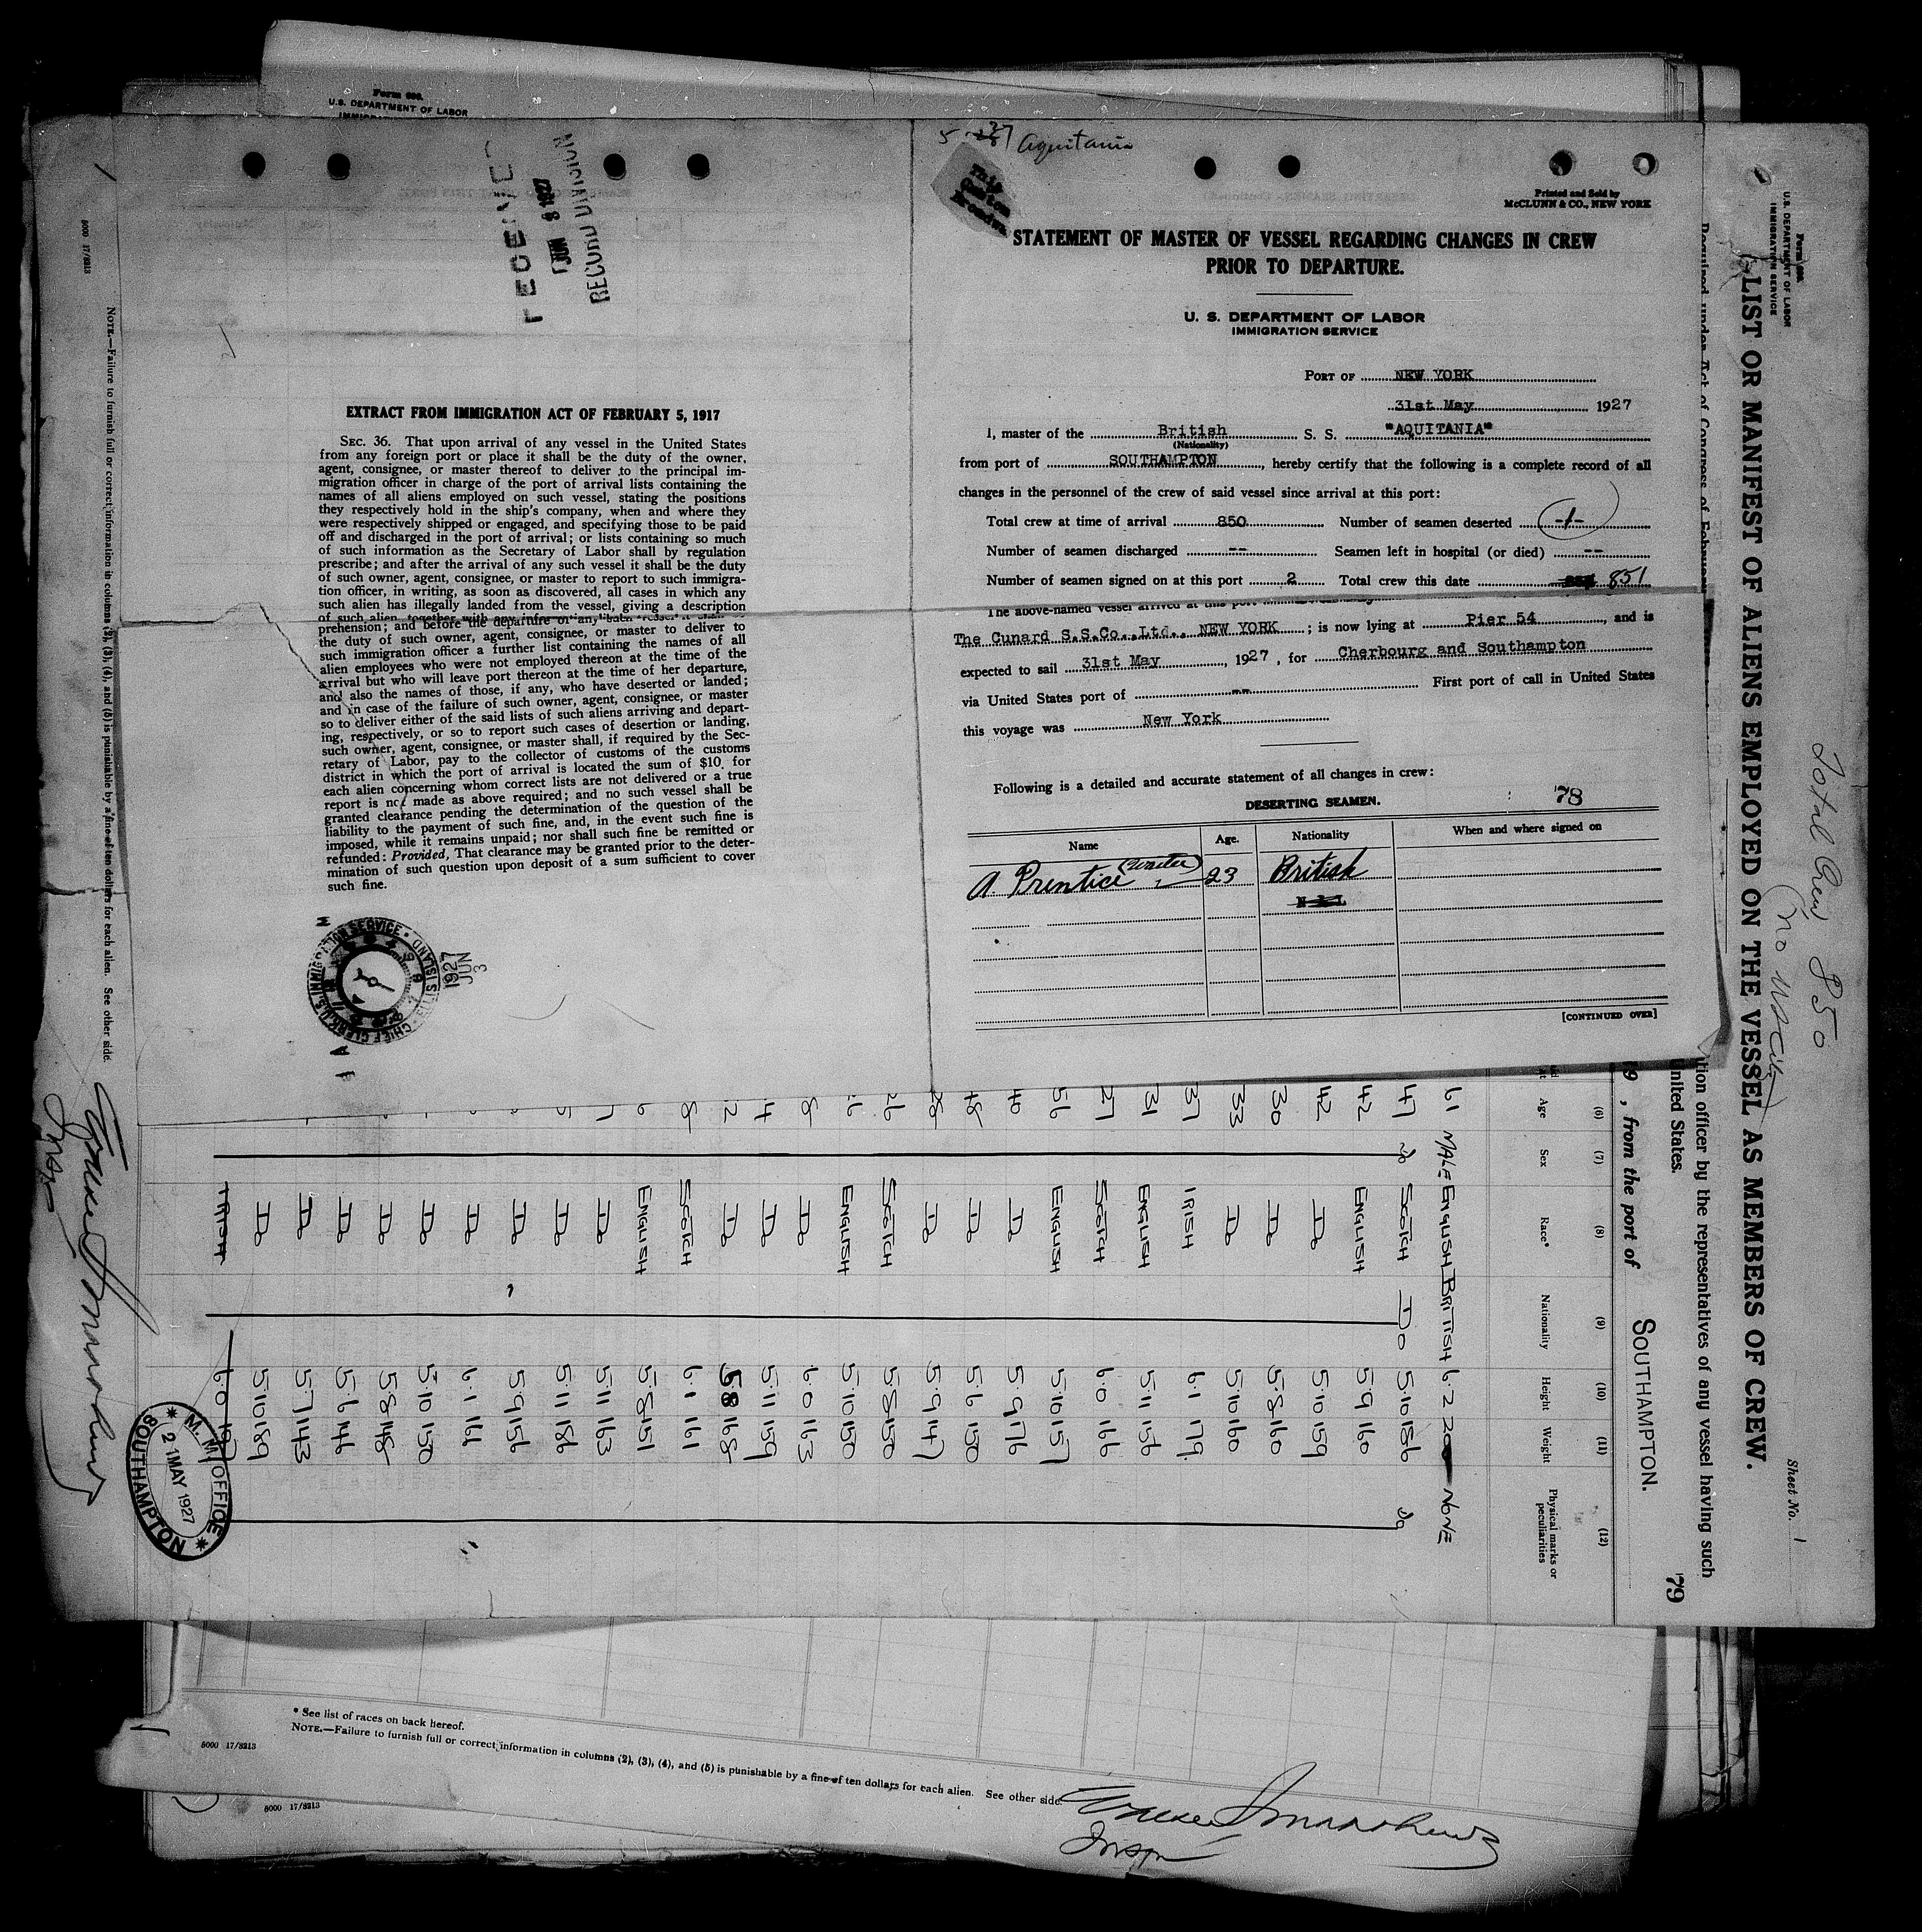 Form 606.
U.S. DEPARTMENT OF LABOR
5-27 Aquitania
This
Caption
RECEIVED
JUN 8 1927
RECORD DIVISION
Printed and Sold by
McCLUNN & CO., NEW YORK
STATEMENT OF MASTER OF VESSEL REGARDING CHANGES IN CREW
PRIOR TO DEPARTURE.
U. S. DEPARTMENT OF LABOR
IMMIGRATION SERVICE
PORT OF NEW YORK
31st May 1927
I, master of the British S. S. "AQUITANIA"
(Nationality)
from port of SOUTHAMPTON, hereby certify that the following is a complete record of all
changes in the personnel of the crew of said vessel since arrival at this port:
Total crew at time of arrival 850 Number of seamen deserted -1-
Number of seamen discharged -- Seamen left in hospital (or died) --
Number of seamen signed on at this port 2 Total crew this date 851
The above-named vessel arrived at this port
The Cunard S.S.Co.,Ltd., NEW YORK ; is now lying at Pier 54, and is
expected to sail 31st May, 1927, for Cherbourg and Southampton
via United States port of -- First port of call in United States
this voyage was New York
Following is a detailed and accurate statement of all changes in crew:
DESERTING SEAMEN. 78
Name Age. Nationality When and where signed on
A. Prentice (Waiter) 23 British
[CONTINUED OVER]
EXTRACT FROM IMMIGRATION ACT OF FEBRUARY 5, 1917
SEC. 36. That upon arrival of any vessel in the United States
from any foreign port or place it shall be the duty of the owner,
agent, consignee, or master thereof to deliver to the principal im-
migration officer in charge of the port of arrival lists containing the
names of all aliens employed on such vessel, stating the positions
they respectively hold in the ship's company, when and where they
were respectively shipped or engaged, and specifying those to be paid
off and discharged in the port of arrival; or lists containing so much
of such information as the Secretary of Labor shall by regulation
prescribe; and after the arrival of any such vessel it shall be the duty
of such owner, agent, consignee, or master to report to such immigra-
tion officer, in writing, as soon as discovered, all cases in which any
such alien has illegally landed from the vessel, giving a description
of such alien, together with any
prehension; and before the departure of any such vessel it shall
the duty of such owner, agent, consignee, or master to deliver to
such immigration officer a further list containing the names of all
alien employees who were not employed thereon at the time of the
arrival but who will leave port thereon at the time of her departure,
and also the names of those, if any, who have deserted or landed;
and in case of the failure of such owner, agent, consignee, or master
so to deliver either of the said lists of such aliens arriving and depart-
ing, respectively, or so to report such cases of desertion or landing,
such owner, agent, consignee, or master shall, if required by the Sec-
retary of Labor, pay to the collector of customs of the customs
district in which the port of arrival is located the sum of $10 for
each alien concerning whom correct lists are not delivered or a true
report is not made as above required; and no such vessel shall be
granted clearance pending the determination of the question of the
liability to the payment of such fine, and, in the event such fine is
imposed, while it remains unpaid; nor shall such fine be remitted or
refunded: Provided, That clearance may be granted prior to the deter-
mination of such question upon deposit of a sum sufficient to cover
such fine.
CHIEF CLERK U.S. IMMIGRATION SERVICE · ELLIS ISLAND
1927
JUN
3
Form 606.
U.S. DEPARTMENT OF LABOR
IMMIGRATION SERVICE
Sheet No. 1
Total Crew 850
LIST OR MANIFEST OF ALIENS EMPLOYED ON THE VESSEL AS MEMBERS OF CREW.
Required under Act of Congress of February
tion officer by the representatives of any vessel having such
United States.
79
, from the port of SOUTHAMPTON.
(6) (7) (8) (9) (10) (11) (12)
Age Sex Race* Nationality Height Weight Physical marks or peculiarities
61 MALE ENGLISH BRITISH 6.2 220 NONE
47 do SCOTCH Do 5.10 186 do
42 ENGLISH 5.9 160
42 Do 5.10 159
30 Do 5.8 160
33 Do 5.10 160
37 IRISH 6.1 179
31 ENGLISH 5.11 156
27 SCOTCH 6.0 166
56 ENGLISH 5.10 157
40 Do 5.9 176
48 Do 5.6 150
28 Do 5.9 147
26 SCOTCH 5.8 150
26 ENGLISH 5.10 150
8 Do 6.0 163
4 Do 5.11 159
2 Do 5.8 168
8 SCOTCH 6.1 161
6 ENGLISH 5.8 151
7 Do 5.11 163
5 Do 5.11 186
Do 5.9 156
Do 6.1 166
Do 5.10 150
Do 5.8 148
Do 5.6 146
Do 5.7 143
Do 5.10 189
IRISH 6.0 197
M. M. OFFICE
21 MAY 1927
SOUTHAMPTON
NOTE.—Failure to furnish full or correct information in columns (2), (3), (4), and (5) is punishable by a fine of ten dollars for each alien. See other side.
5000 17/8213
Inspr
* See list of races on back hereof.
NOTE.—Failure to furnish full or correct information in columns (2), (3), (4), and (5) is punishable by a fine of ten dollars for each alien. See other side.
5000 17/8213
5000 17/8213
Inspr